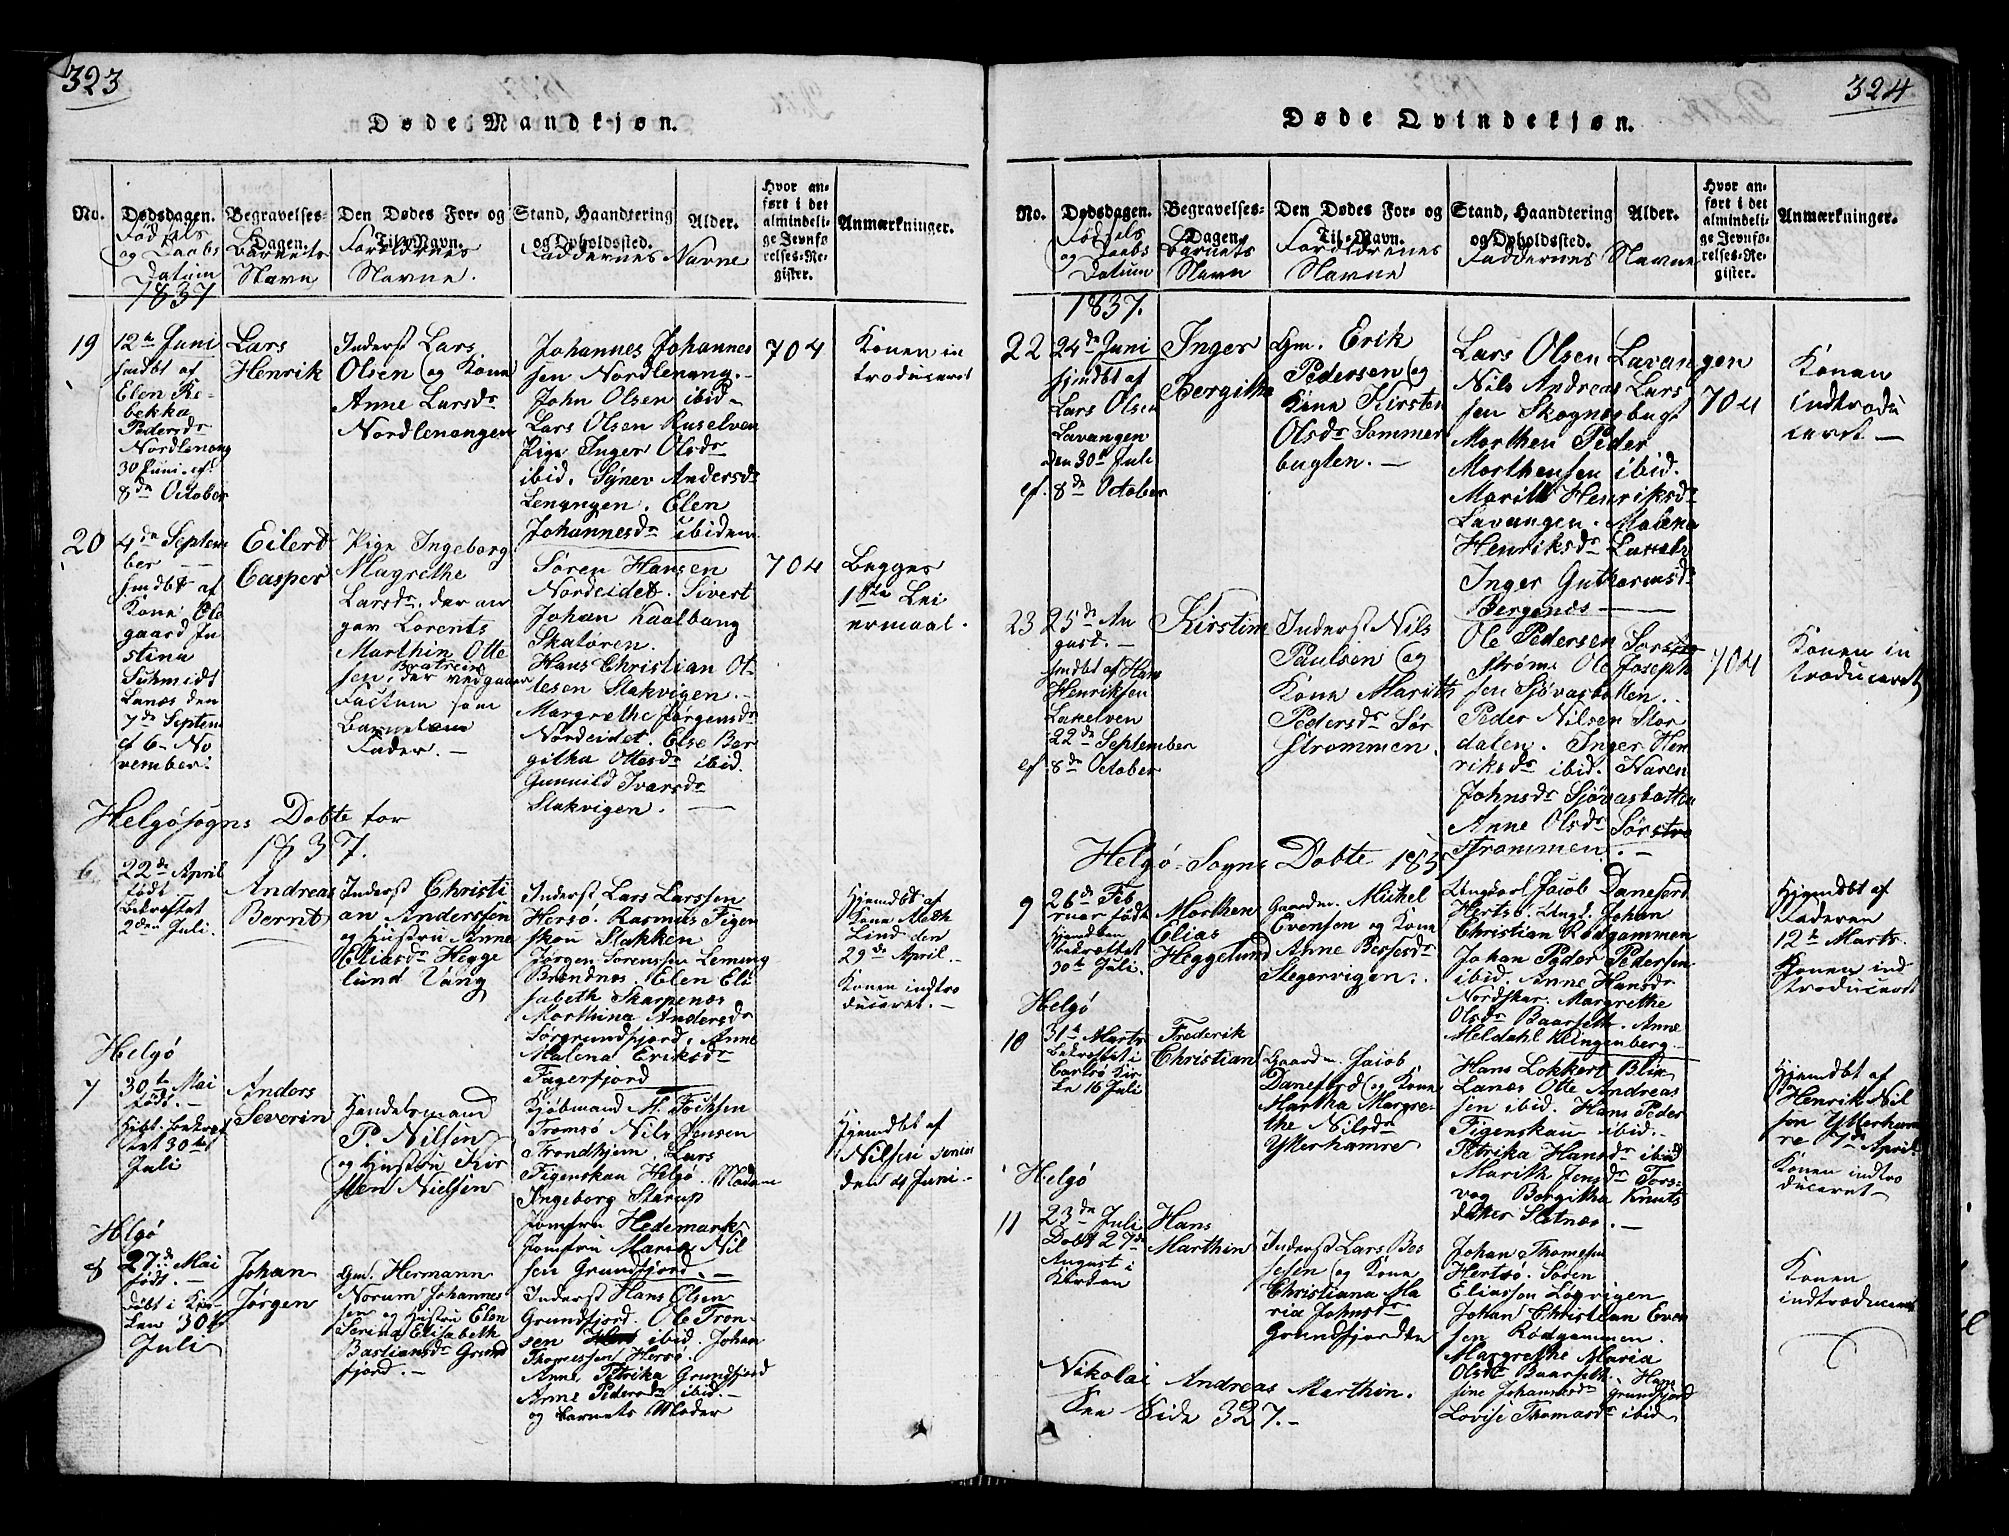 323
Døde Mandkjøn.
No.
Dødsdagen.
Fødsels
og Daabs
Datum
1837
Begravelses-
Dagen.
Barnets
Navn
Den Dødes For- og
Til-Navn.
Forældrenes
Navne.
Stand, Haandtering
og Opholdssted.
Faddernes Navne
Alder.
Hvor an-
ført i det
almindeli-
ge Jevnfø-
relses-Re-
gister.
Anmærkninger.
19
12te Juni
hmdbt af
Elen Re-
bekka
Pedersdr
Nordlenang
30 Juni. cf.
8de October
Lars
Henrik
Inderst Lars
Olsen og Kone
Anne Larsdr
Nordlenangen
Johannes Johannes
sen Nordlenang.-
John Olsen ibid-
Lars Olsen Ruselven
Pige Inger Olsdr
ibid. Synev Andersdr
Lenangen. Elen
Johannesdr ibidem
704
Konen in
troduceret
20
4de Septem
ber -
hmdbt af
Kone Ole
gaard Ju
stina
Schmidt
Lanæs den
7de Septem
cf 6- No
vember.
Eilert
Casper
Pige Ingeborg
Magrethe
Larsdr, der an
gav Lorents
Marthin Otte
sen, Bratrein
der vedgaaer
Factum som
Barnets
Fader.-
Søren Hansen
Nordeidet. Sivert
Johan Kaalbang
Skatøren.
Hans Christian Ot-
tesen Slakvigen.-
Margrethe Jørgensdr
Nordeidet. Else Ber
githa Ottesdr ibid.
Gunnild Ivarsdr
Slakvigen.
704
Begges
1ste Lei
ermaal.
Helgøsogns Døbte for
1837.
6
22de April
født
Bekræftet
2den Juli.
Andreas
Bernt
Inderst Christi
an Anderssen
og Hustru Anne
Eliasdr Hegge
lund Vang
Inderst Lars Larssen
Hersø. Rasmus Figen
skou Slakken
Jørgen Sørenssen Leming
Brendnes. Elen Eli
sabeth Skarpenæs
Morthina Andersdr
Sørgrundfjord, Anne
Malena Eriksdr
Fagerfjord
Hjemdbt af
Kone
Lind den
29de April.
Konen indtro
duceret.-
Helgø
7
30te Mai
født.-
Hjdbt. bekræf
tet 30te
Juli
Anders
Severin
Handelsmand
P. Nilsen
og Hustru Kir
sten Nielsen
Kjøbmand M. Fochsen
Tromsø Nils Jensen
Trondhjem. Lars
Figenskau Helgø. Madam
Ingeborg Starup
Jomfru Hedemark
Jomfru Maren Nil
sen Grundfjord.-
Hjemdbt af
Nilsen senior
den 4 Juni-
Helgø
8
27de Mai
født.-
Døbt i Kir-
ken 30te
Juli
Johan
Jørgen
Gm. Hermann
Norum Johannes
sen og Hustru Elen
Serina Elisabeth
Bastiansdr Grund
fjord.-
Inderst Hans Olsen
Grundfjord. Ole Tron-
sen ibid. Johan
Thomessen Hersø.
Anne Petrika Grundfjord
Anne Pedersdr ibid.-
og Barnets Moder
324
Døde Qvindekjøn.
No.
Dødsdagen.
Fødsels
og Daabs
Datum
1837.
Begravelses-
Dagen.
Barnets
Navn
Den Dødes For- og
Til-Navn.
Forældrenes
Navne
Stand, Haandtering
og Opholdssted.
Faddernes Navne
Alder.
Hvor an-
ført i det
almindeli-
ge Jevnfø-
relses-Re-
gister.
Anmærkninger.
22
24de Juni
Hjmdbt af
Lars Olsen
Lavangen
den 30te Juli
cf. 8de October
Inger
Bergitha
Gm. Erik
Pedersen og
Kone Kirsten
Olsdr Sommer
bugten.-
Lars Olsen Lavangen
Nils Andreas Lars
sen Skognesbugt
Morthen Peder
Morthensen ibid.
Marith Henriksdr
Lavangen. Malena
Henriksdr
Inger Guthormsdr
Bergenes
704
Konen
indtrodu
ceret.-
23
25de Au
gust.-
hmdbt af Hans
Henriksen
Laxelven
22de September
cf. 8de October
Kirstine
Inderst Nils
Paulsen og
Kone Marith
Pedersdr Sør
strømmen.
Ole Pedersen Sør
strøm. Ole Joseph
sen Sjøvasbotten..
Peder Nilsen Stor
dalen. Inger Hen
riksdr ibid. Karen
Johnsdr Sjøvasbotten
Anne Olsdr Sør
strømmen.-
704
Konen in
troduceret
Helgø-Sogns Døbte 183
9
26de Feb
ruar født
hjemdbt
bekræftet
30te Juli.
Morthen
Elias
Heggelund
Gaardm. Mickel
Evensen og Kone
Anne Bessesdr
Stegervigen..
Ungkarl Jacob Danefærd
Hertsø. Ungk. Johan
Christian Rødgammen
Johan Peder Pedersen
ibid. Anne Hansdr
Nordskar. Margrethe
Olsdr Baarseth. Anne
Meldahl Klingenberg.-
Hjemdbt af
Faderen
12te Marts.
Konen ind
troduceret
Helgø
10
31te Marts
Bekræftet i
Carlsø Kir
ke 16 Juli
Frederik
Christian
Gaardm. Jacob
Danefærd og Kone
Martha Margre-
the Nilsdr
Ytterhamre
Hans Lokkert Blik
Lanæs Otte Andreas
sen ibid. Hans Peder
Figenskau ibid.-
Petrika Hansdr ibid
Marith Jensdr Tors-
vog Bergitha Knuts
datter Sletnæs.-
Hjemdbt af
Henrik Nil
sen Ytterham
re 7de April
Konen indtro
duceret-
Helgø
11
23de Juli
Døbt 27de
August i
Kirken
Hans
Marthin
Inderst Lars Bes
sesen og Kone
Christiana Ma
ria Johnsdr
Grundfjorden
Johan Thomesen
Hertsø. Søren
Eliassen Løgvigen
Johan Christian Even
sen Rødgammen.
Margrethe Maria
Olsdr Baarseth. Han
sine Johannesdr Grundfjord
Lovise Thomasdr ibid
Konen
indtroduceret
Nikolai Andreas Marthin.
See Side 327.-